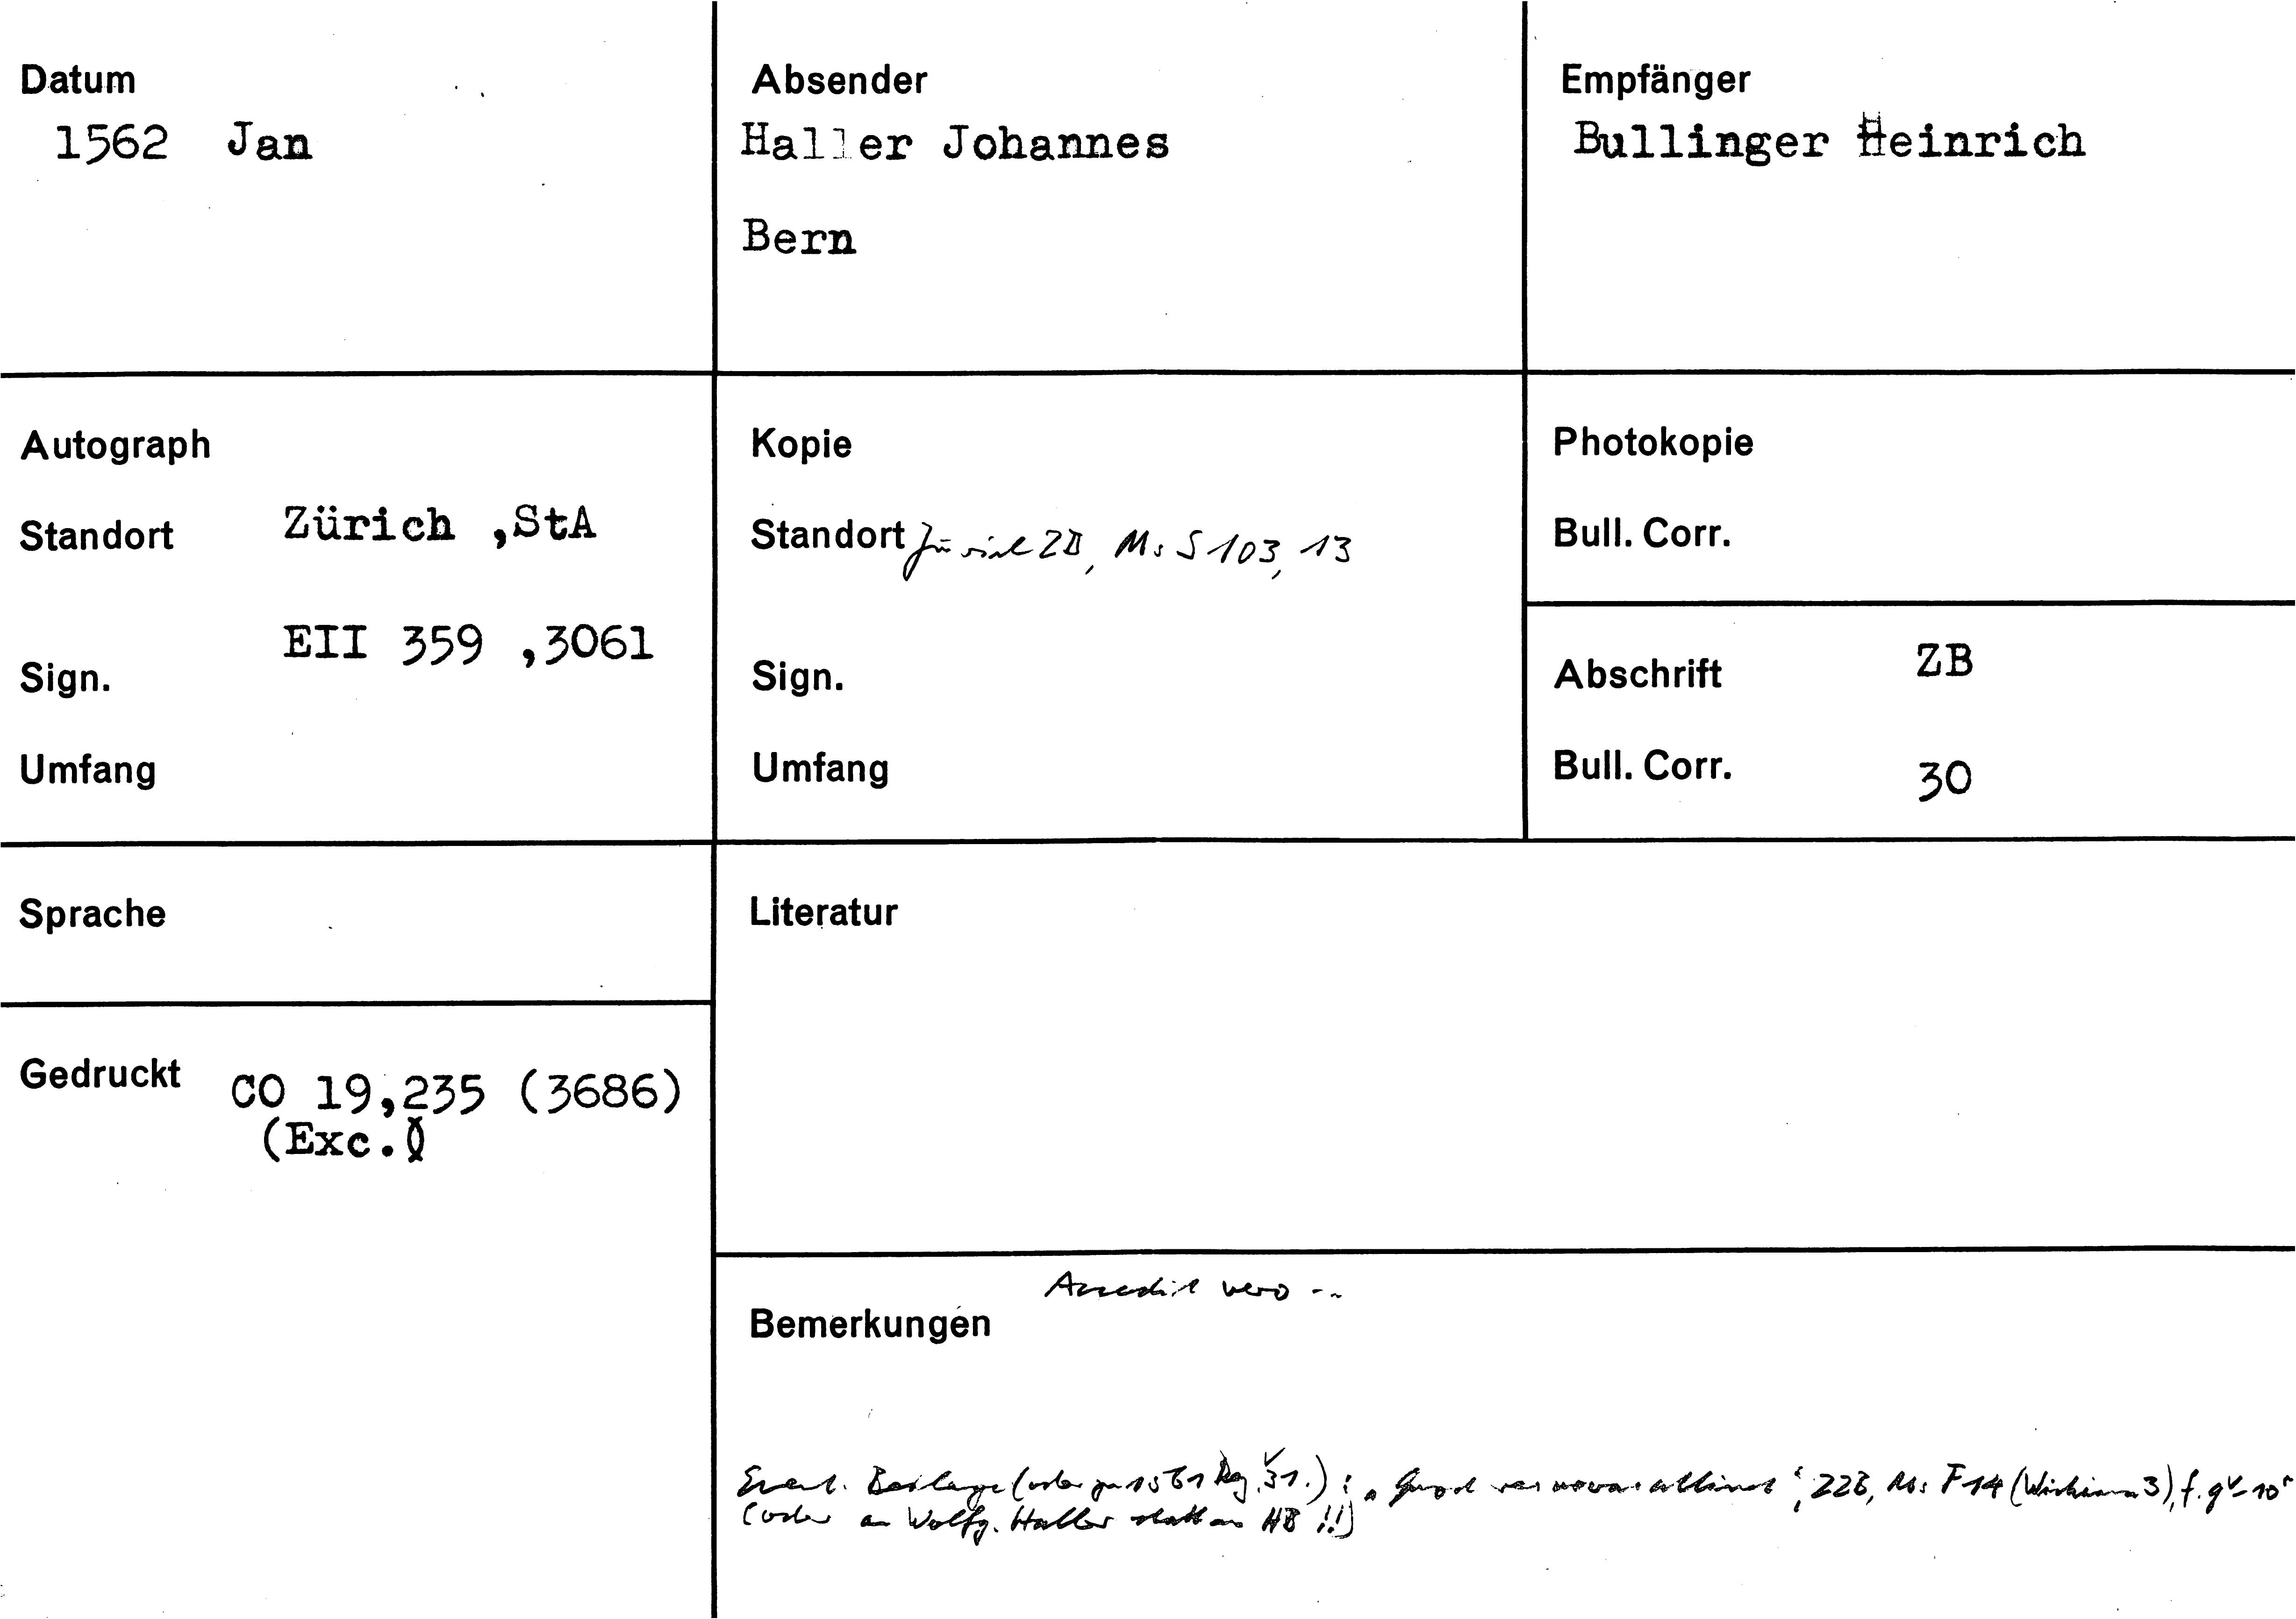 Datum
1562 Jan
Absender
Haller Johannes
Bern
Empfänger
Bullinger Heinrich
Autograph
Standort Zürich ,StA
Sign. EII 359 ,3061
Umfang
Kopie
Standort Zürich ZB, Ms S 103, 13
Sign.
Umfang
Photokopie
Bull. Corr.
Abschrift ZB
Bull. Corr. 30
Sprache
Gedruckt CO 19,235 (3686)
(Exc.)
Literatur
Accedit vero --
Bemerkungen
Event. Beilage (oder zu 1561 31.) : "Quod res novas attinet", ZZB, Ms F 14 (Wickiana 3), f. 9v-10r
(oder an Wolfg. Haller statt an HB !!)